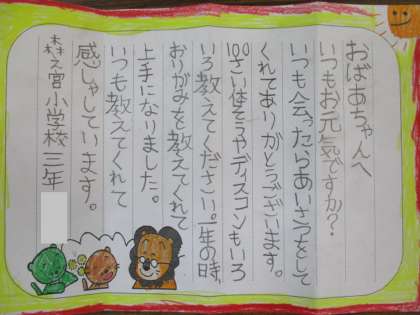 おばあちゃんへ
いつもお元気ですか?
いつも会ったらあいさつをして
くれてありがとうございます。
100さい体そうやディスコンもいろ
いろ教えてください。一年の時、
おりがみを教えてくれて
上手になりました。
いつも教えてくれて
感しゃしています。
森之宮小学校 三年